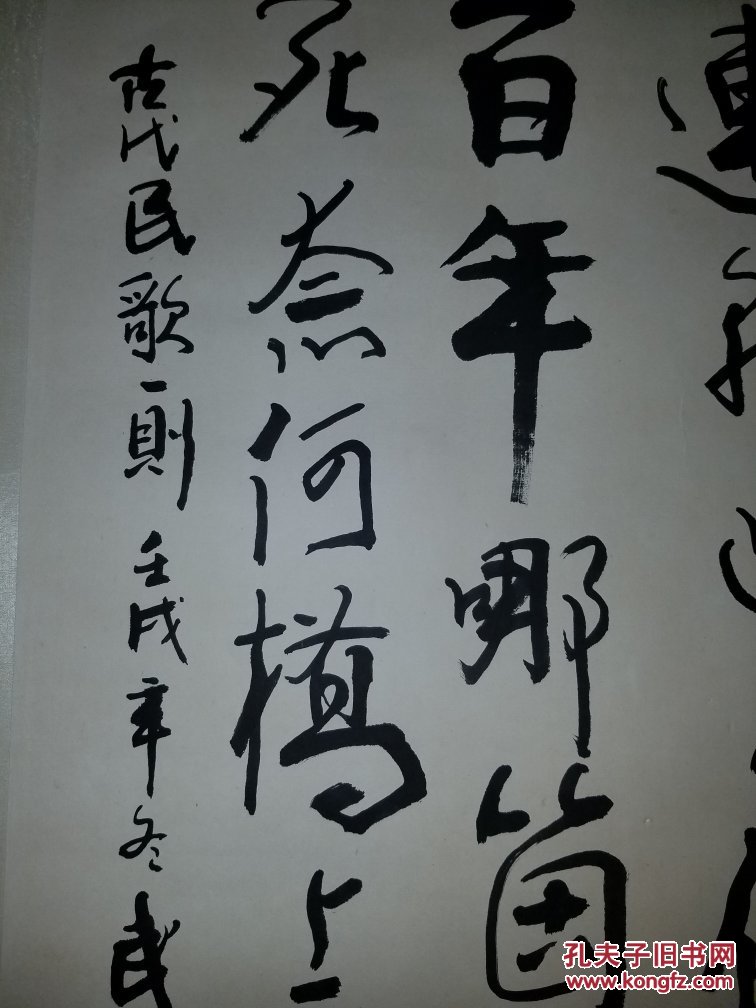 連
百年哪箇
死奈何橋上
古代民歌一則 壬戌年冬武
孔夫子旧书网
www.kongfz.com